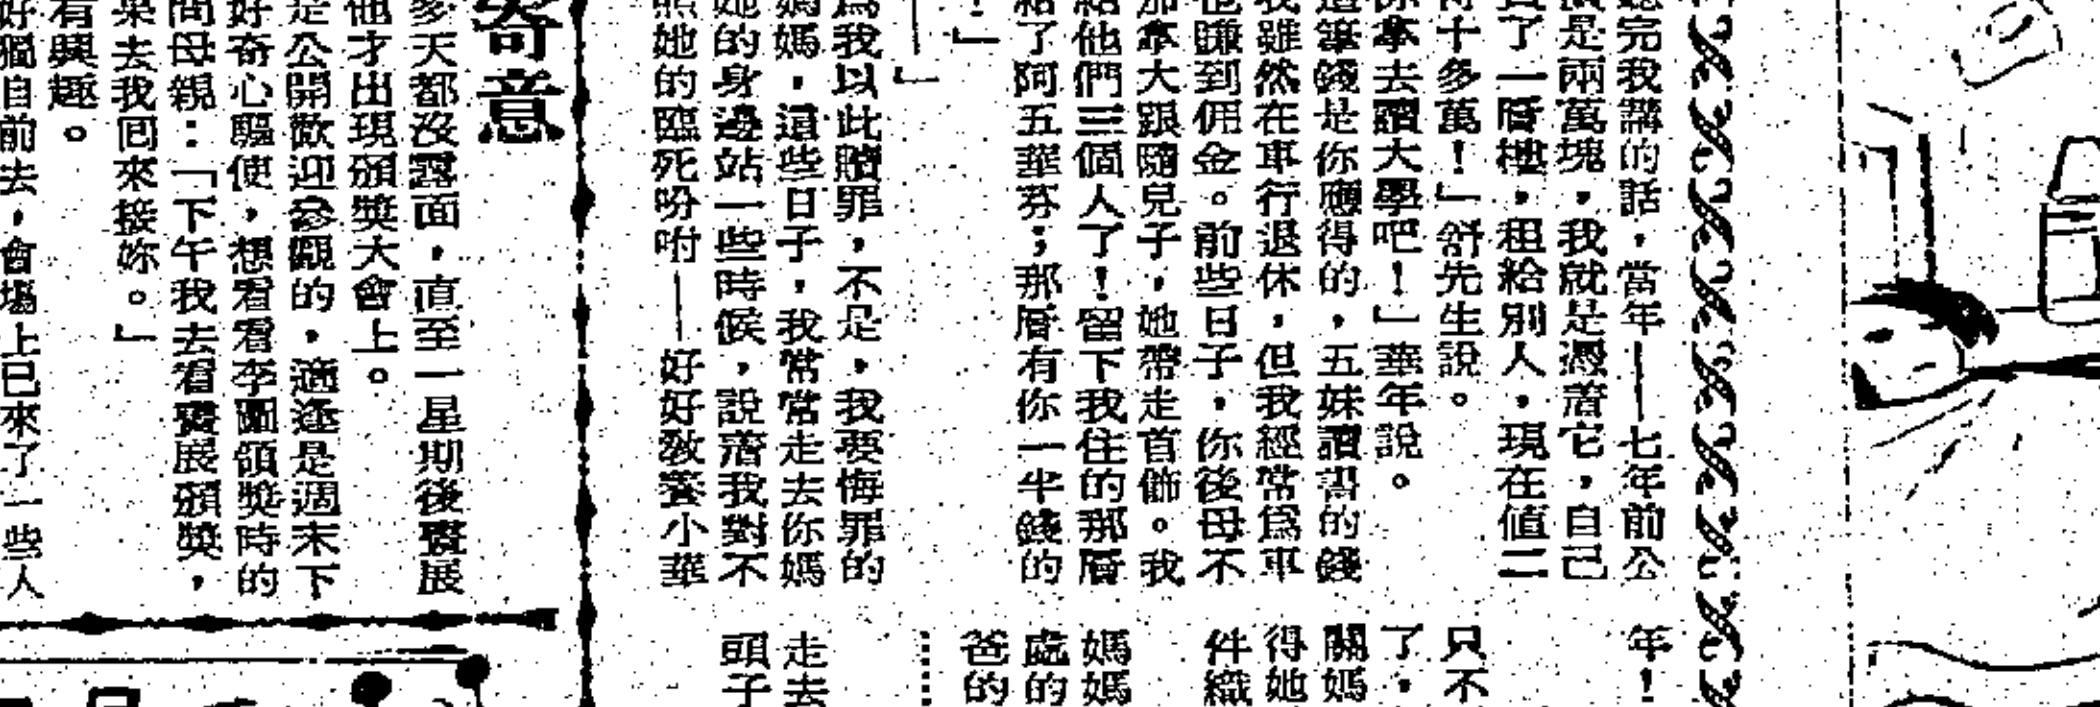 完我講的話，當年——七年前公
是兩萬塊，我就是憑著它，自己
了一層樓，租給別人，現在值二
十多萬！」舒先生說。
你拿去讀大學吧！」華年說。
這筆錢是你應得的，五妹讀書的錢
我雖然在車行退休，但我經常爲車
他賺到佣金。前些日子，你後母不
那拿大跟隨兒子，她帶走首飾。我
給他們三個人了！留下我住的那層
給了阿五華芬；那層有你一半錢的
！」
——」
爲我以此贖罪，不是，我要悔罪的
媽媽，這些日子，我常常走去你媽
她的身邊站一些時候，說著我對不
照她的臨死吩咐——好好教養小華
年！
只不
了，
關媽
得她
件織
媽媽
處的
爸的
……
走去
頭子
寄意
多天都沒露面，直至一星期後畫展
他才出現頒獎大會上。
是公開歡迎參觀的，適逢是週末下
好奇心驅使，想看看李圖領獎時的
問母親：「下午我去看畫展頒獎，
果去我回來接妳。」
有興趣。
好獨自前去，會場上已來了一些人